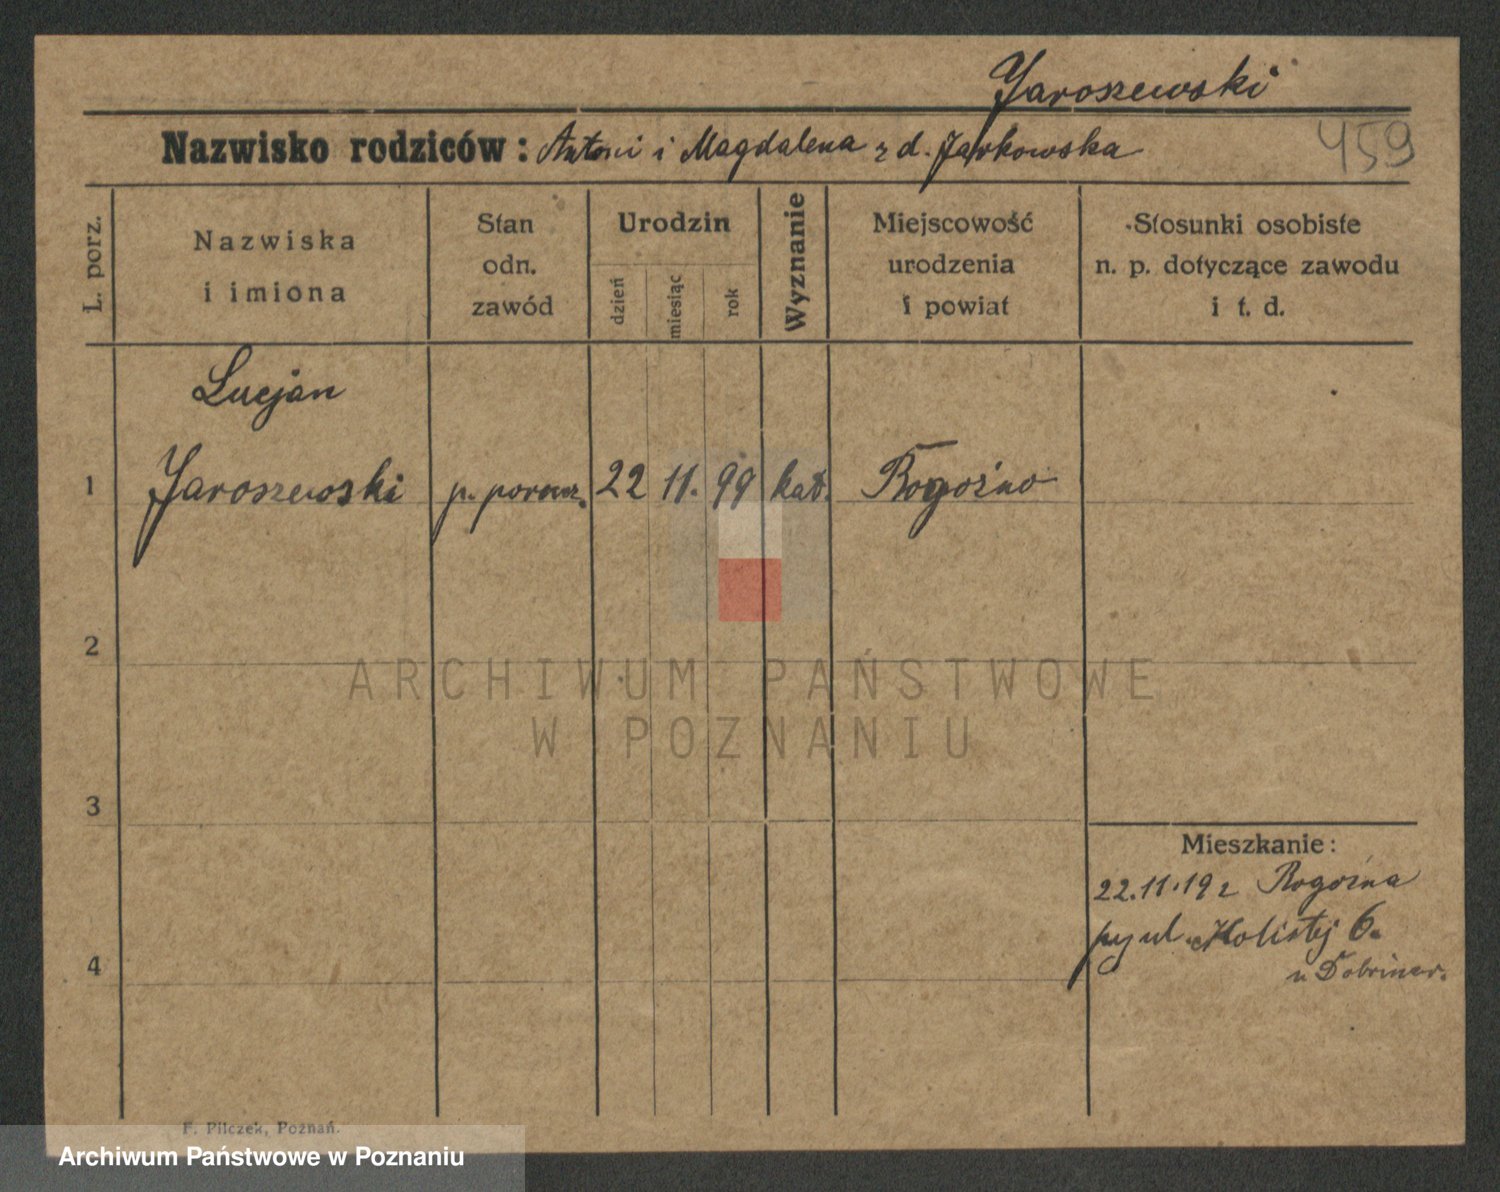 Jaroszewski
459
Nazwisko rodziców: Antoni i Magdalena z d. Jarkowska
L. porz.
Nazwiska
i imiona
Stan
odn.
zawód
Urodzin
dzień
miesiąc
rok
Wyznanie
Miejscowość
urodzenia
i powiat
Stosunki osobiste
n. p. dotyczące zawodu
i t. d.
Lucjan
1 Jaroszewski p. porucz. 22 11. 99 kat. Rogoźno
2
ARCHIWUM PAŃSTWOWE
W POZNANIU
3
Mieszkanie:
22.11.19 z Rogoźna
4
6.
F. Pilczek, Poznań.
Archiwum Państwowe w Poznaniu